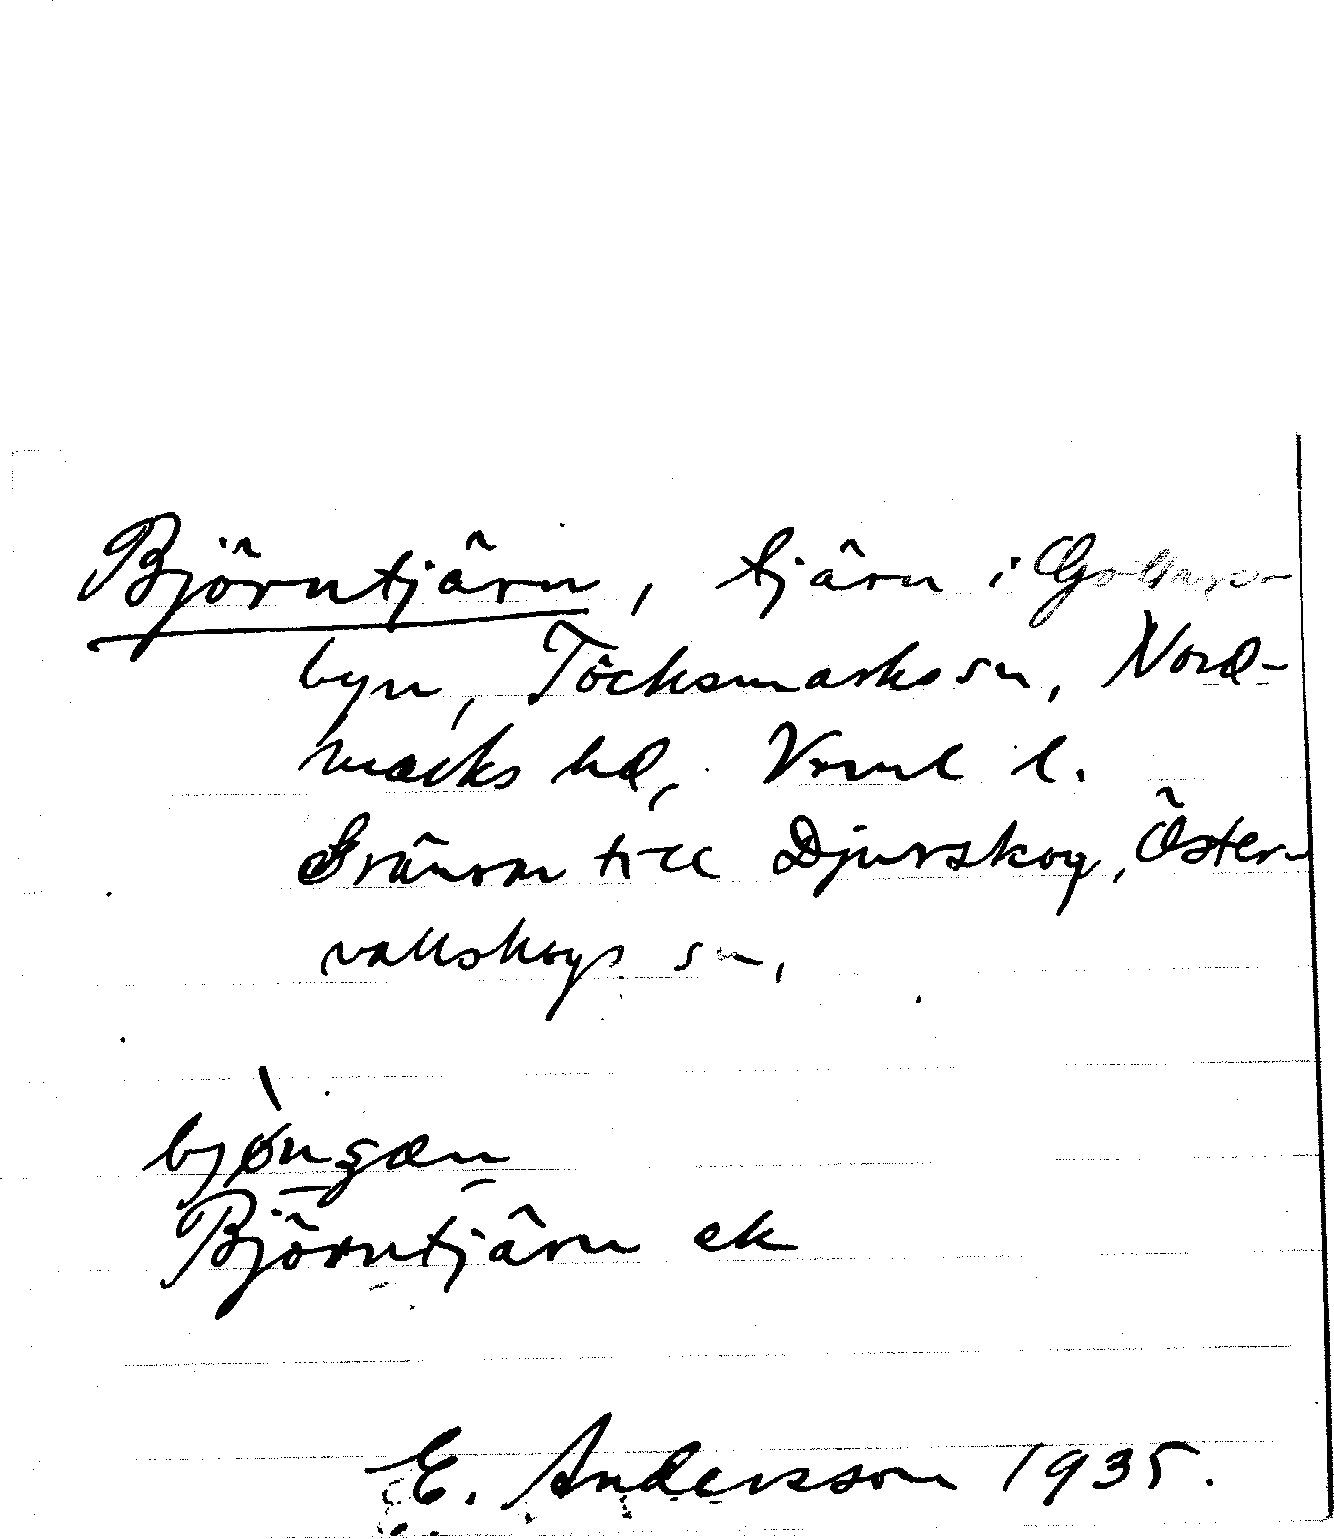 Björntjärn, tjärn i
byn, Töcksmarks sn, Nord-
marks hd, Vrml l.
Gränsar till Djurskog, Öster-
vallskogs sn,
Björntjärn ek
E. Andersson 1935.